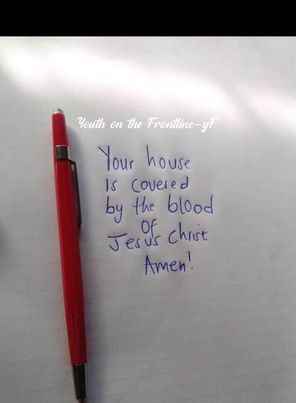 Youth on the Frontline-yF
Your house
is covered
by the blood
of
Jesus Christ
Amen!